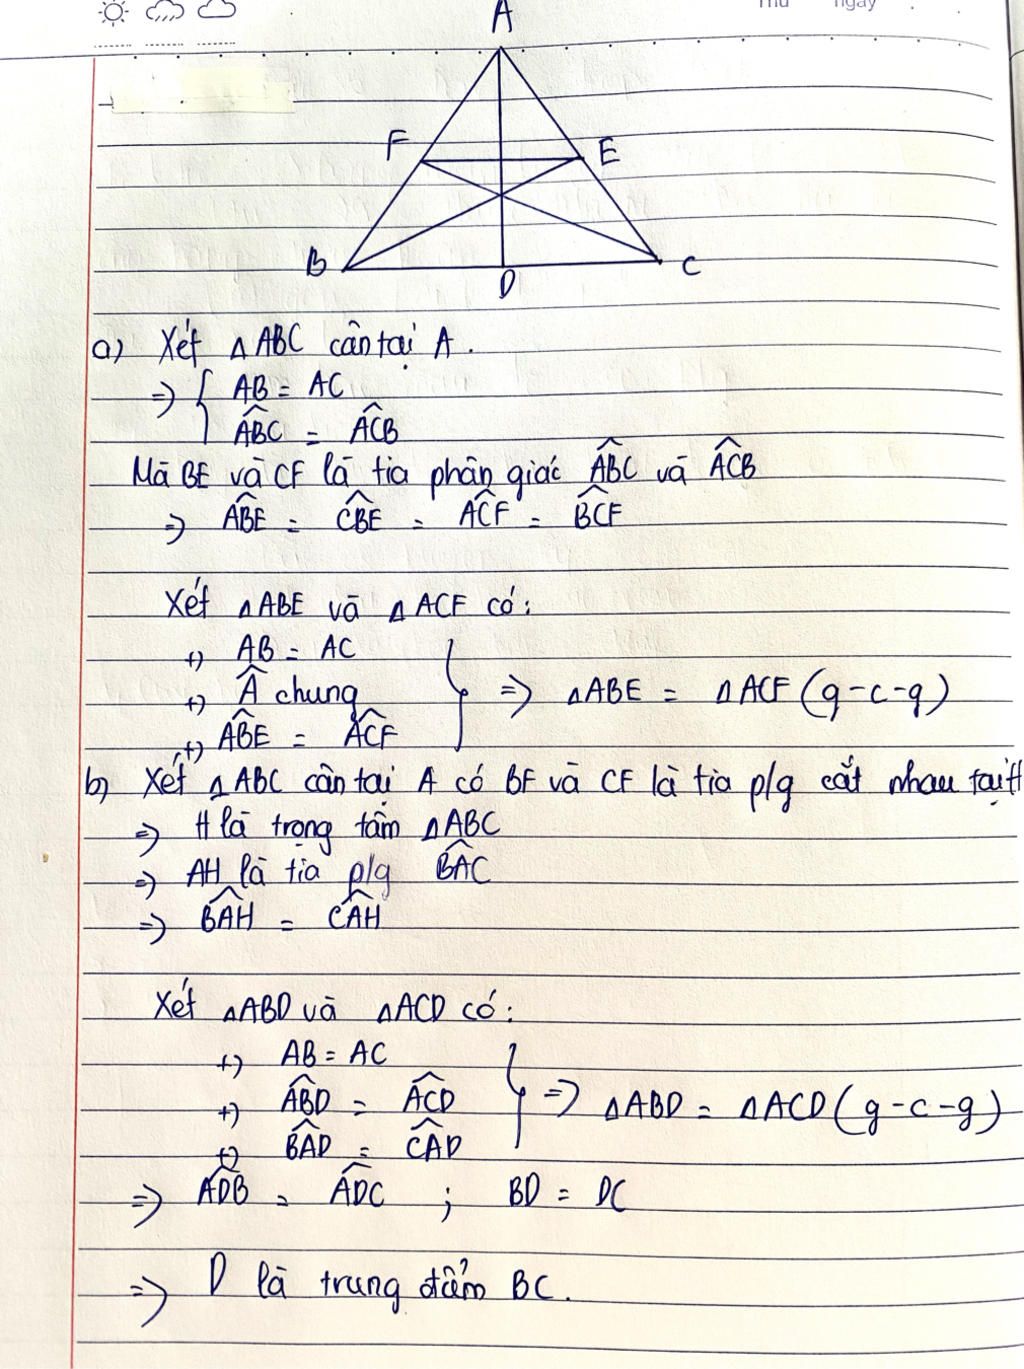 Thứ ngày
A
F
E
B
D
C
a) Xét △ABC cân tại A.
=> { AB = AC
ABC^ = ACB^
Mà BE và CF là tia phân giác ABC^ và ACB^
=> ABE^ = CBE^ = ACF^ = BCF^
Xét △ABE và △ACF có:
+) AB = AC
+) Â chung } => △ABE = △ACF (g-c-g)
+) ABE^ = ACF^
b) Xét △ABC cân tại A có BF và CF là tia p/g cắt nhau tại H
=> H là trọng tâm △ABC
=> AH là tia p/g BAC^
=> BAH^ = CAH^
Xét △ABD và △ACD có:
+) AB = AC
+) ABD^ = ACD^ } => △ABD = △ACD (g-c-g)
+) BAD^ = CAD^
=> ADB^ = ADC^ ; BD = DC
=> D là trung điểm BC.